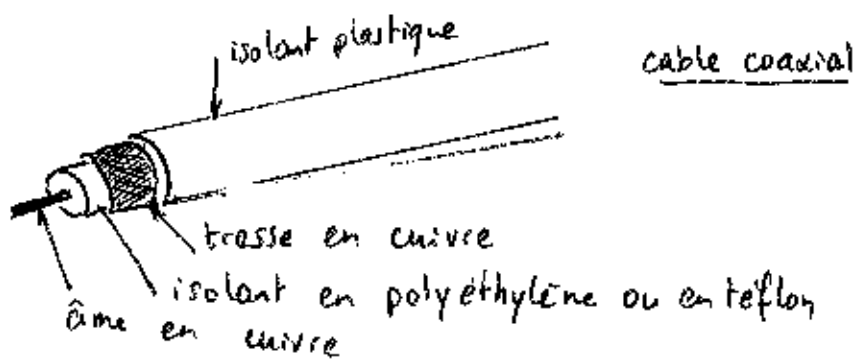 isolant plastique
cable coaxial
trasse en cuivre
isolant en polyéthylène ou en téflon
âme en cuivre